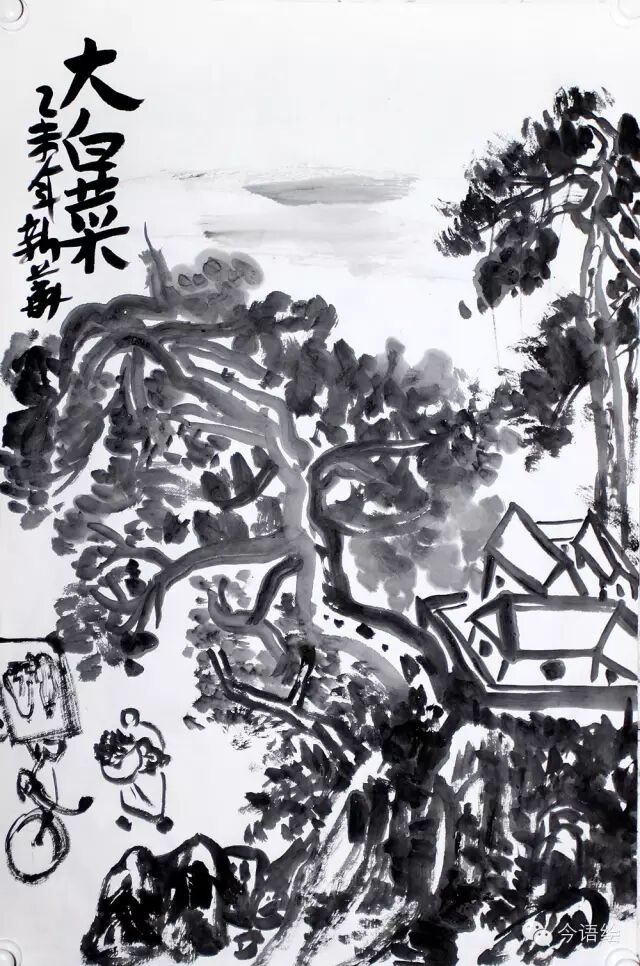 大白菜
乙未年新
今语绘